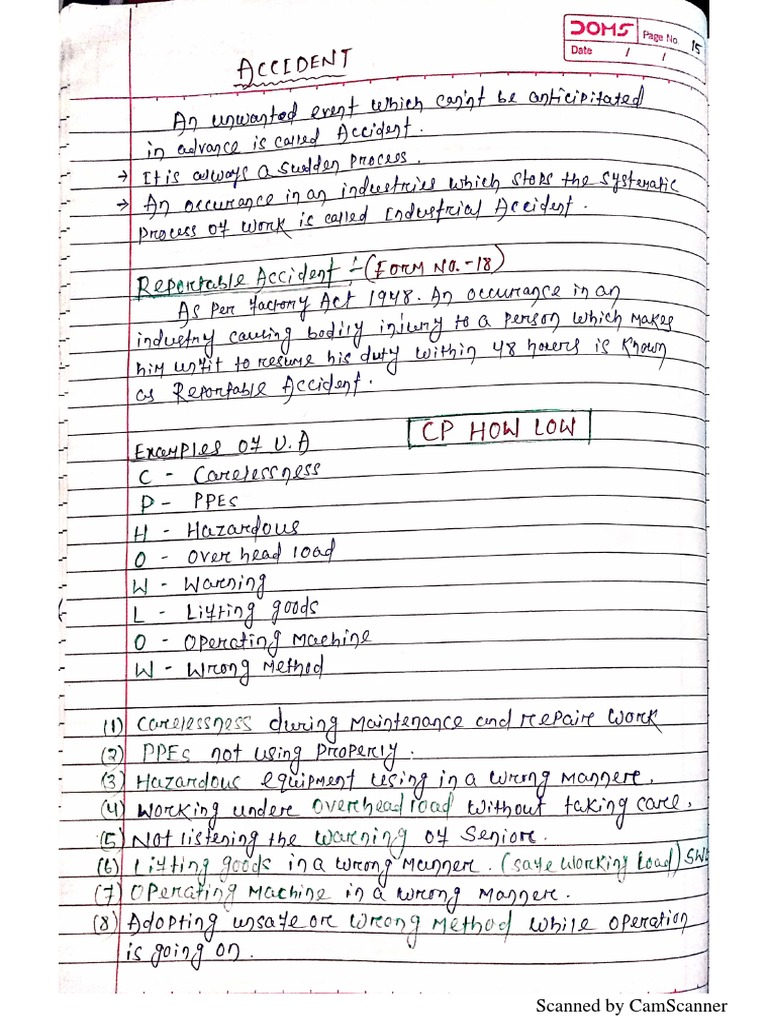 DOMS Page No. 15
Date / /
ACCIDENT
An unwanted event which can't be anticipitated
in advance is called Accident.
→ It is always a sudden process.
→ An occurance in an industries which stops the systematic
process of work is called Industrial Accident.
Reportable Accident :- (FORM NO.-18)
As per factory Act 1948. An occurance in an
industry causing bodily injury to a person which makes
him unfit to resume his duty within 48 hours is known
as Reportable Accident.
Examples of U.A CP HOW LOW
C - Carelessness
P - PPEs
H - Hazardous
O - Over head load
W - Warning
L - Lifting goods
O - Operating Machine
W - Wrong Method
(1) Carelessness during maintenance and repaire work
(2) PPEs not using properly.
(3) Hazardous equipment using in a wrong mannere.
(4) Working under overhead load without taking care.
(5) Not listening the warning of Senior.
(6) Lifting goods in a wrong manner. (safe working load) SWL
(7) Operating Machine in a wrong manner.
(8) Adopting unsafe or wrong method while operation
is going on.
Scanned by CamScanner